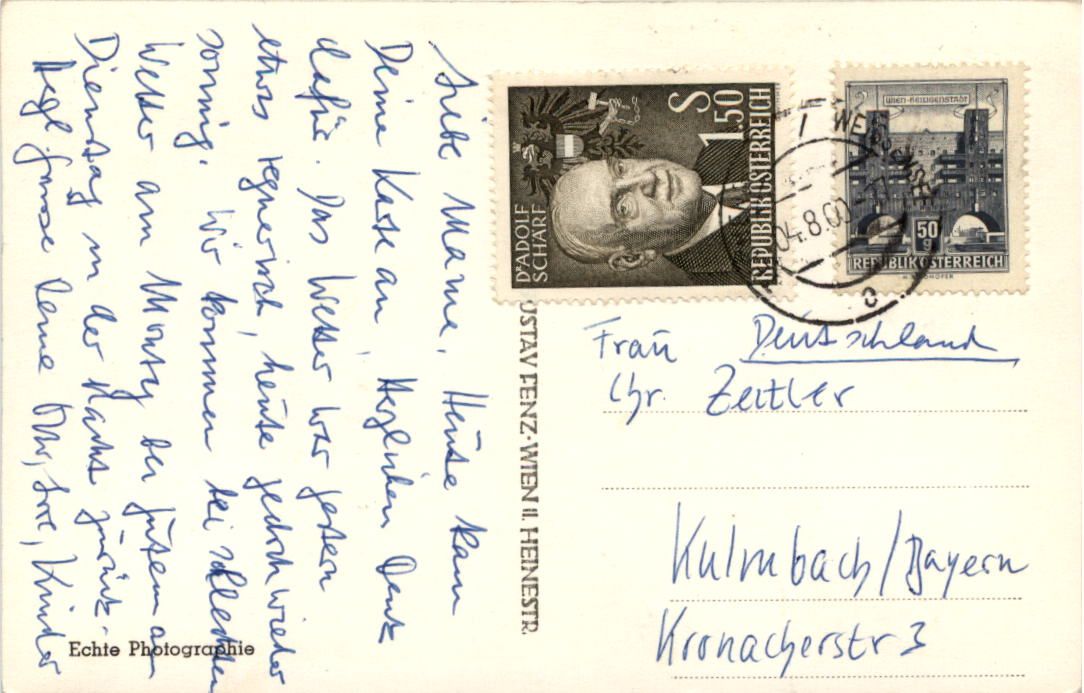 Liebe Mame, Heute kam
Deine Karte an, Herzlichen Dank
dafür. Das Wetter war gestern
etwas regnerisch, heute jedoch wieder
sonnig. Wir kommen bei schlechten
Wetter am Montag bei gutem am
Dienstag in der Nacht zurück.
Herzl. Grüsse Deine Lore, Kinder
Echte Photographie
USTAV FENZ·WIEN II. HEINESTR.
DR ADOLF
SCHÄRF
S 1.50
REPUBLIK ÖSTERREICH
WIEN-HEILIGENSTADT
50
g
REPUBLIK ÖSTERREICH
WEISSENSEE
04.8.60
c
Frau Deutschland
Chr. Zeitler
Kulmbach/Bayern
Kronacherstr 3